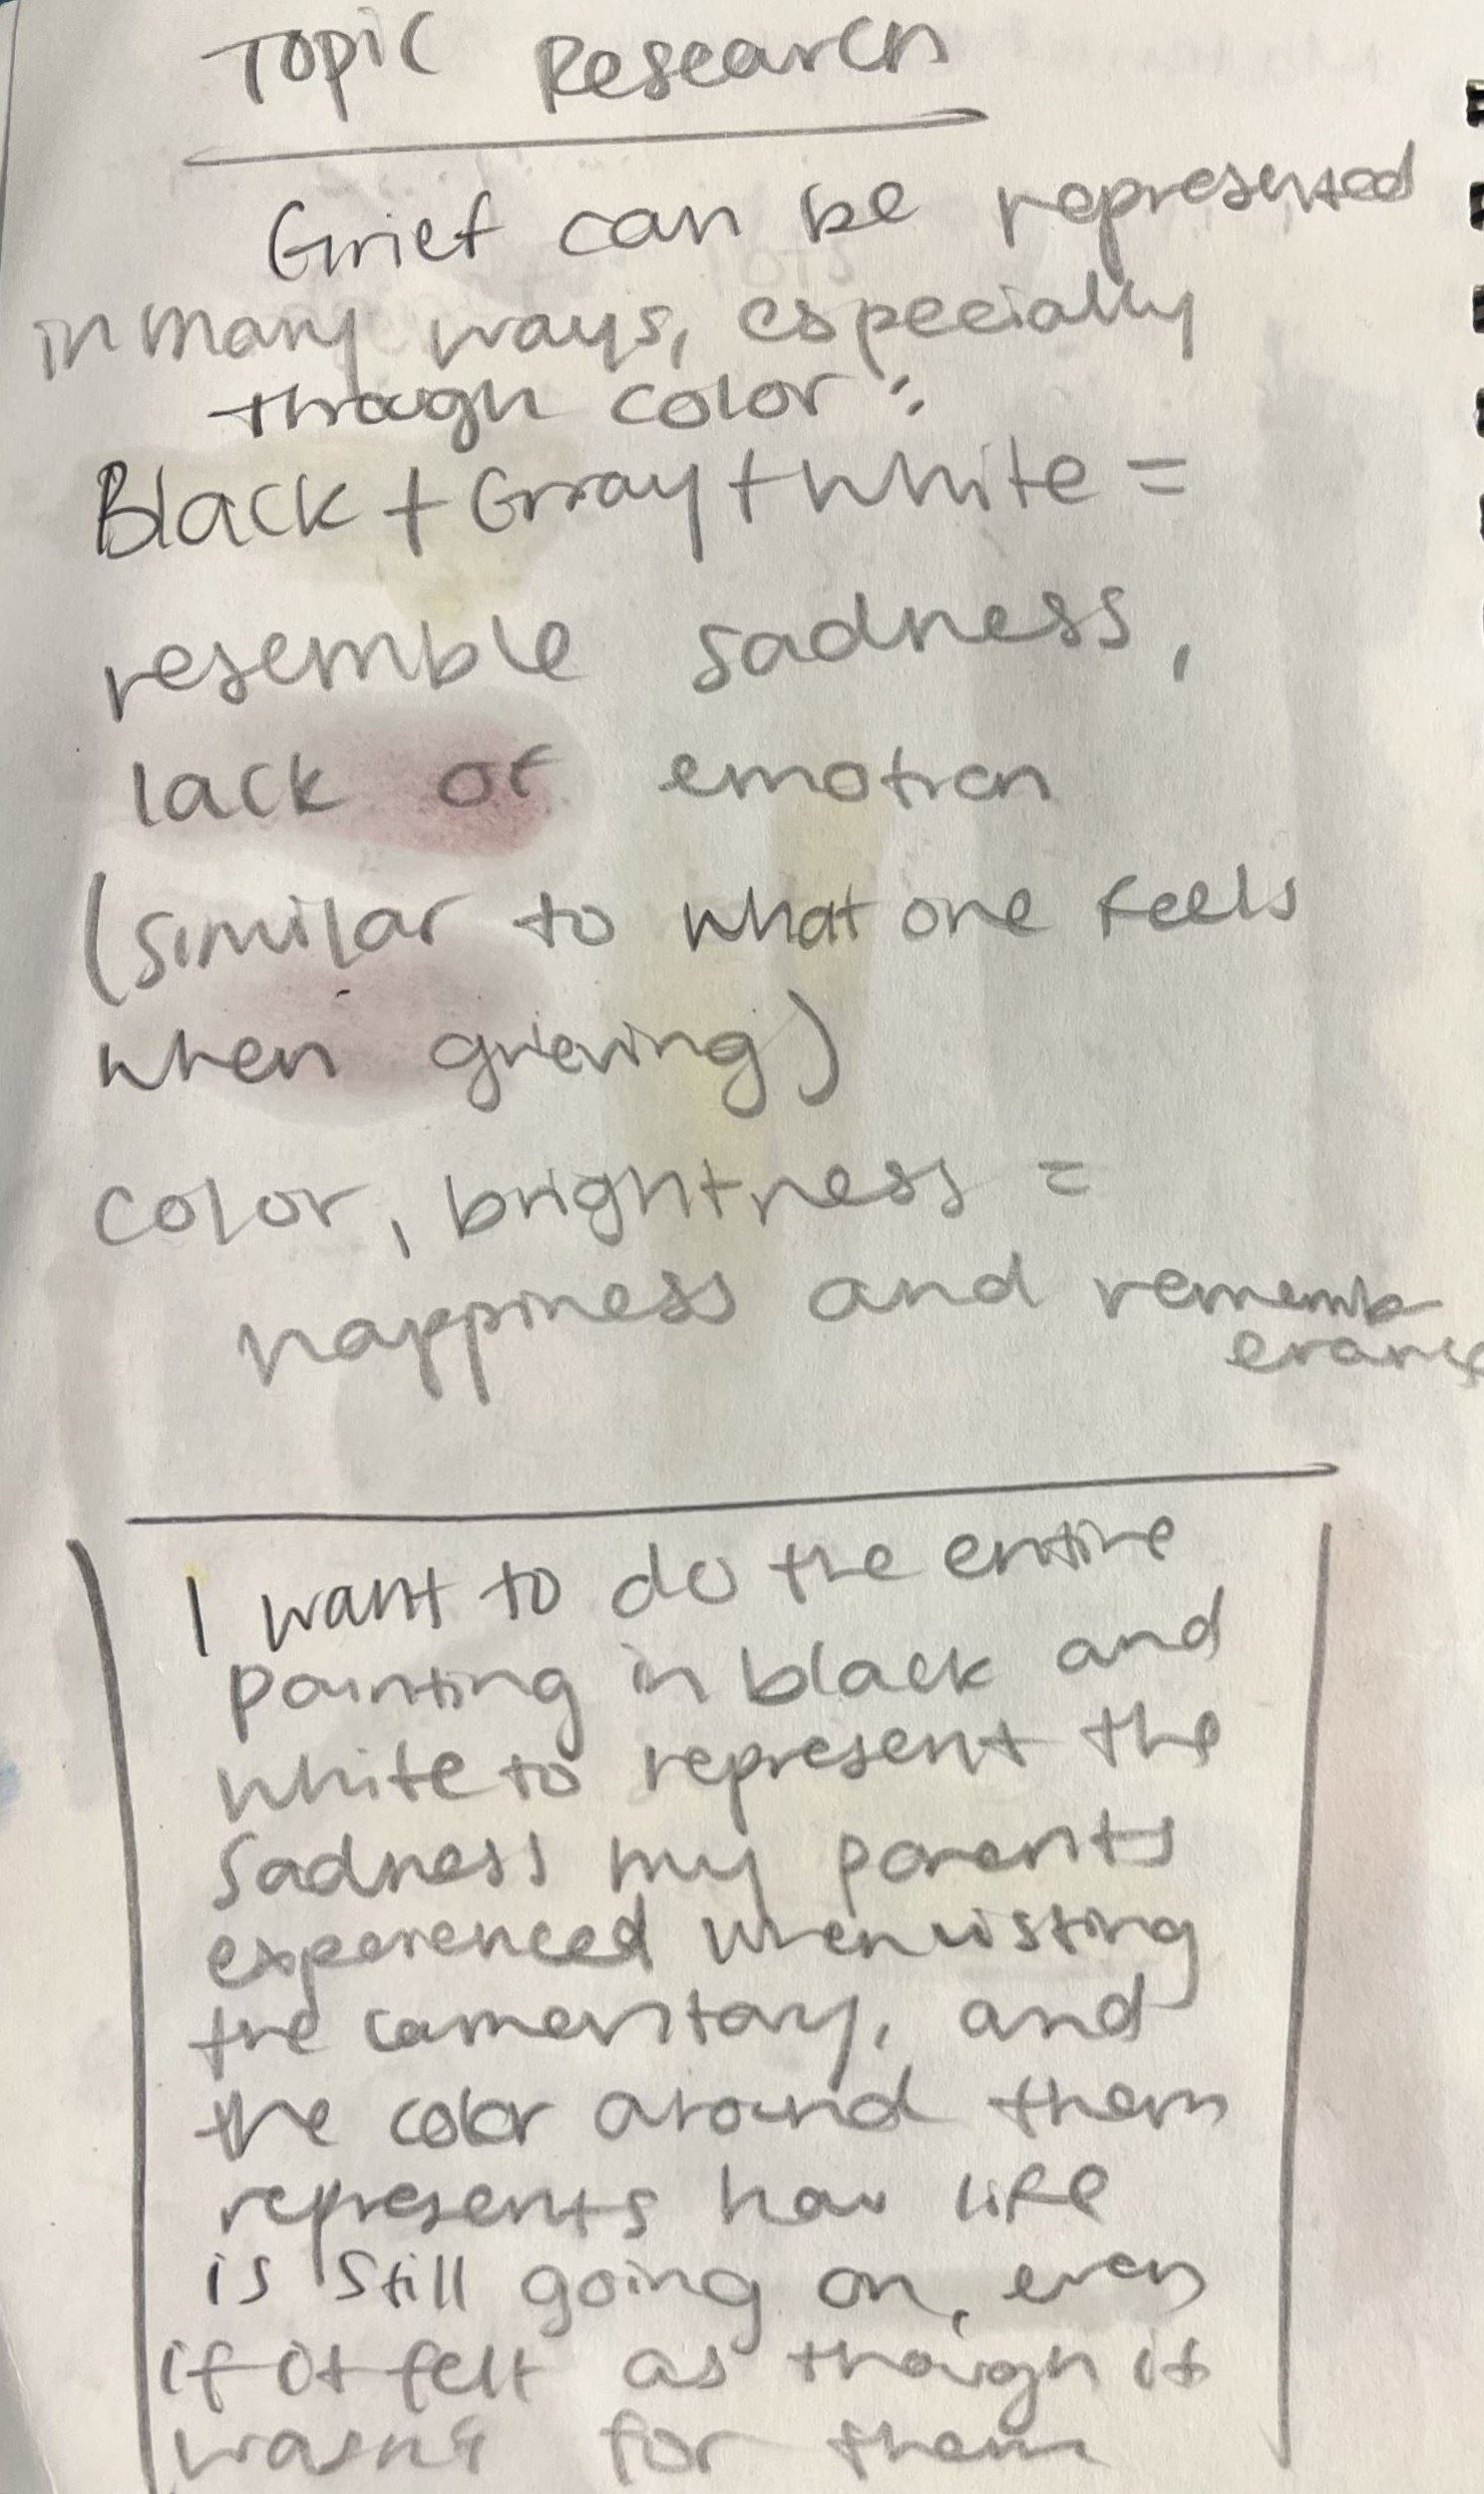 Topic Research
Grief can be represented
in many ways, especially
through color:
Black + Gray + white =
resemble sadness,
lack of emotion
(similar to what one feels
when grieving)
color, brightness =
happiness and rememb
erance
I want to do the entire
painting in black and
white to represent the
sadness my parents
experienced when visting
the camentary, and
the color around them
represents how life
is still going on, even
if it felt as though it
wasn't for them